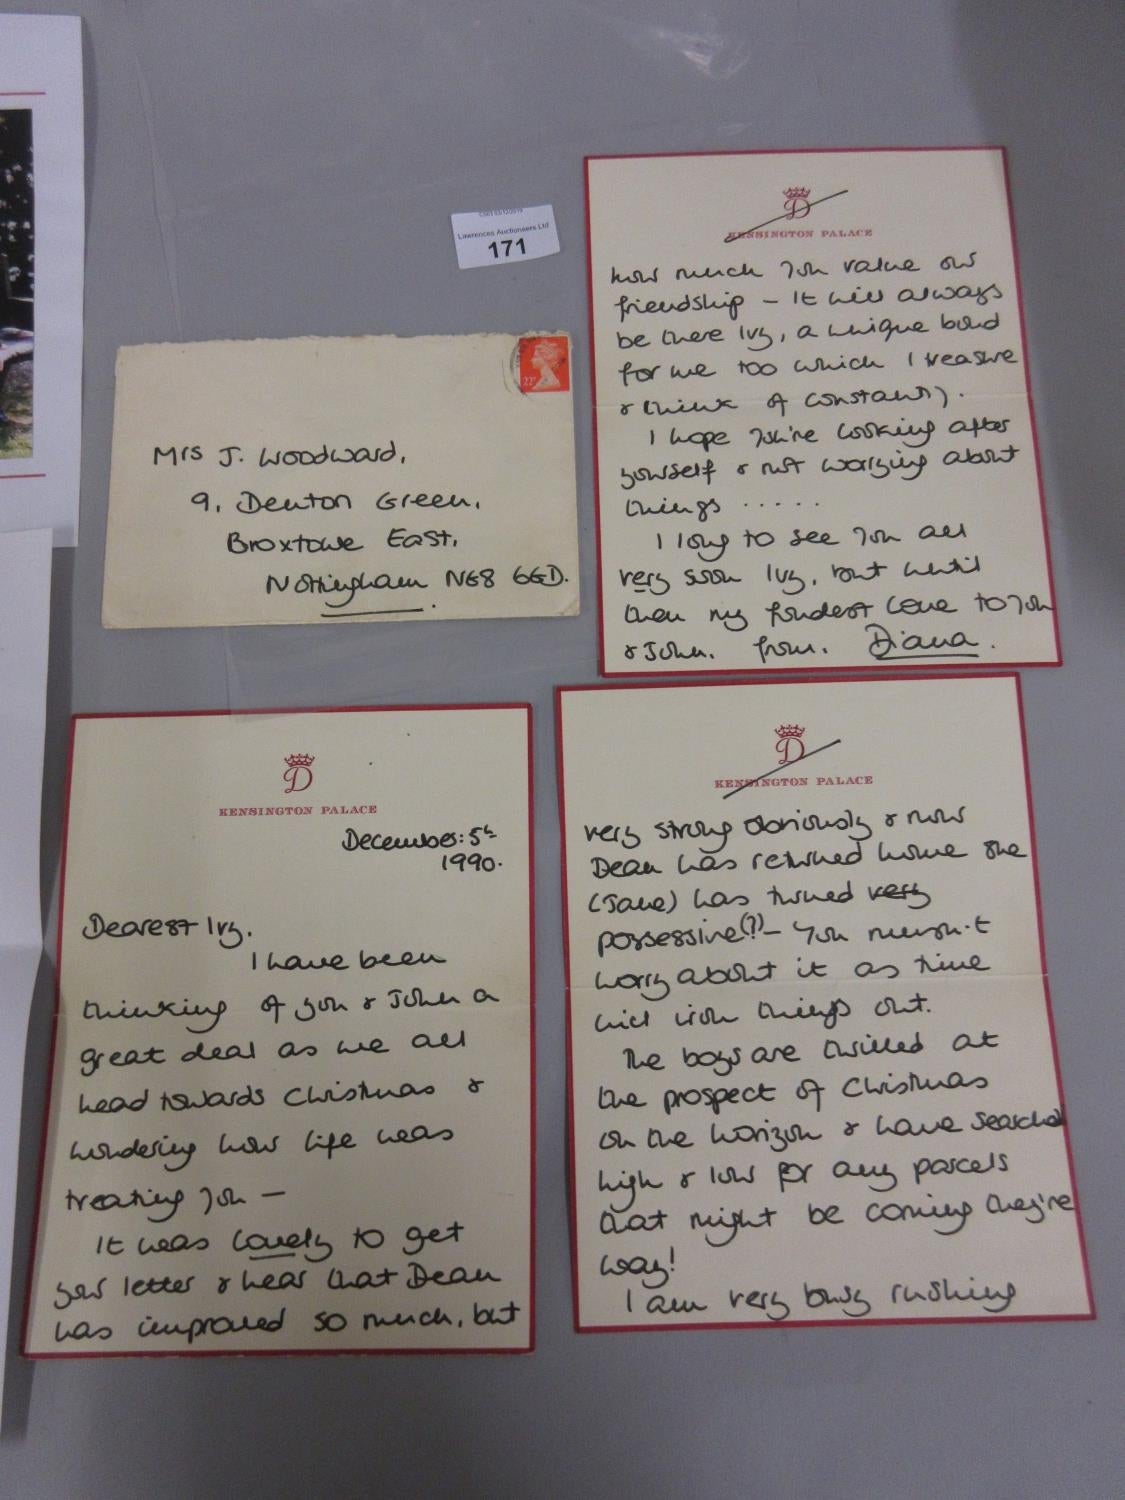 Lawrences Auctioneers Ltd
171
Mrs J. Woodward,
9, Denton Green,
Broxtowe East,
Nottingham NG8 6GD.
D
KENSINGTON PALACE
December: 5th
1990.
Dearest Ivy,
I have been
thinking of you & John a
great deal as we all
head towards Christmas &
wondering how life was
treating you -
It was lovely to get
your letter & hear that Dean
has improved so much, but
D
KENSINGTON PALACE
very strong obviously & now
Dean has returned home she
(Jane) has turned very
possessive(?) - You musn't
worry about it as time
will iron things out.
The boys are thrilled at
the prospect of Christmas
on the horizon & have searched
high & low for any parcels
that might be coming they're
way!
I am very busy rushing
D
KENSINGTON PALACE
how much you value our
friendship - It will always
be there Ivy, a unique bond
for me too which I treasure
& think of constantly.
I hope you're looking after
yourself & not worrying about
things .....
I long to see you all
very soon Ivy, but until
then my fondest love to you
& John. from. Diana.